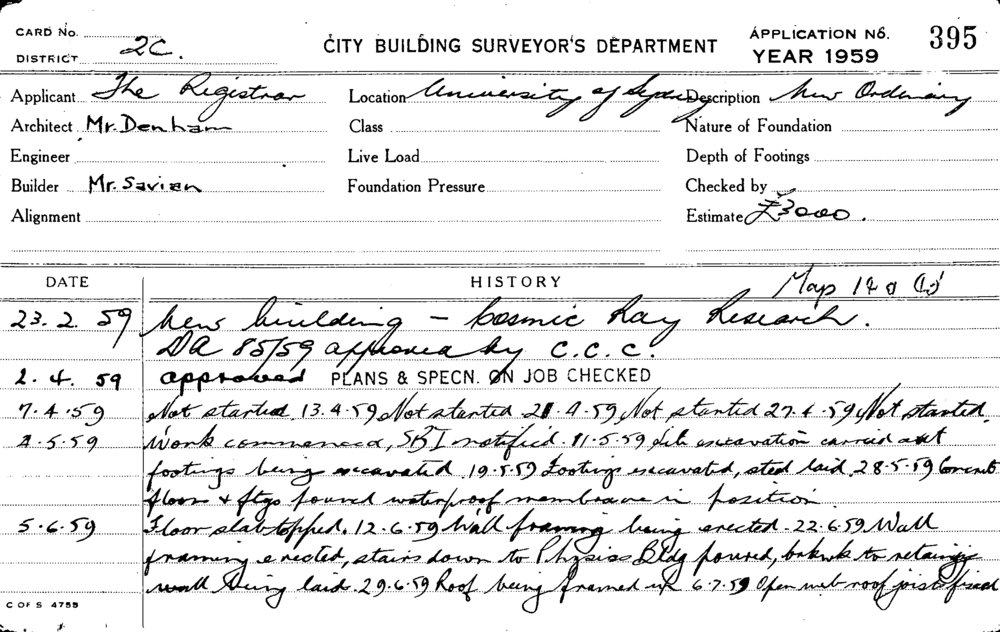 CARD No.
DISTRICT 2C.
CITY BUILDING SURVEYOR'S DEPARTMENT
APPLICATION No. 395
YEAR 1959
Applicant The Registrar Location University of Sydney Description New Ordinary
Architect Mr. Denham Class Nature of Foundation
Engineer Live Load Depth of Footings
Builder Mr. Savian Foundation Pressure Checked by
Alignment Estimate £3000.
DATE HISTORY Map 14
23.2.59 New building - Cosmic Ray Research.
DA 85/59 approved by C.C.C.
2.4.59 approved PLANS & SPECN. ON JOB CHECKED
7.4.59 Not started. 13.4.59 Not started 21.4.59 Not started 27.4.59 Not started.
4.5.59 Work commenced, SBI notified. 11.5.59 Site excavation carried out
footings being excavated. 19.5.59 Footings excavated, steel laid. 28.5.59 Concrete
floor & ftgs poured waterproof membrane in position
5.6.59 Floor slab topped. 12.6.59 Wall framing being erected. 22.6.59 Wall
framing erected, stairs down to Physics Bldg poured, brkwk to retaining
wall being laid. 29.6.59 Roof being framed up 6.7.59 Open web roof joists fixed
C OF S 4755